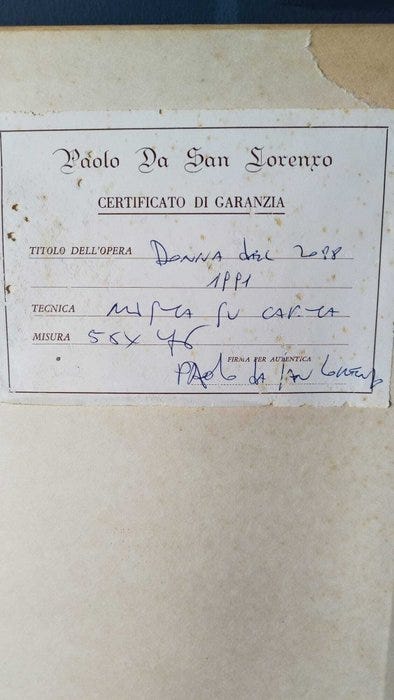 Paolo Da San Lorenzo
CERTIFICATO DI GARANZIA
TITOLO DELL'OPERA Donna del 2088
1991
TECNICA MISTA SU CARTA
MISURA 56X76
FIRMA PER AUTENTICA
PAOLO DA SAN LORENZO